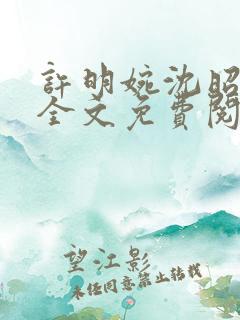 許明婉沈昭
全文免費閱
望江影
未经同意禁止转载